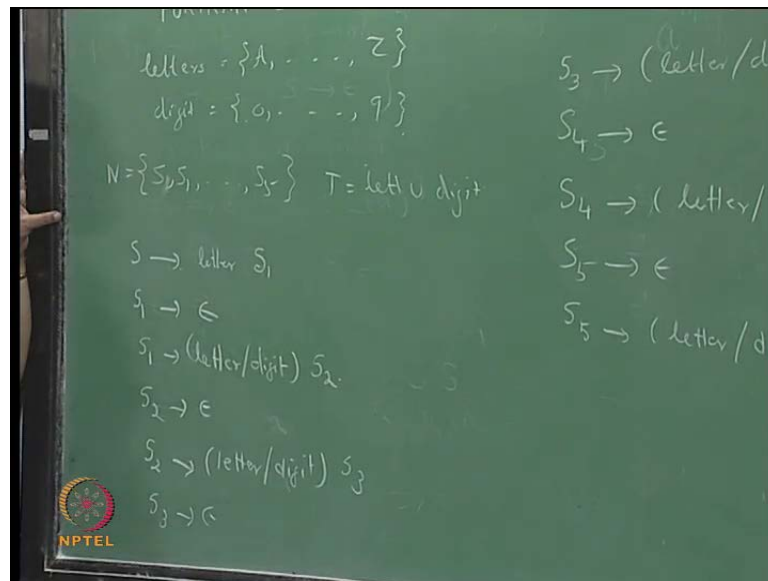 letters = {A, . . . ., Z}
digit = {0, . . . ., 9}
N = {S, S₁, . . ., S₅} T = lett ∪ digit
S → letter S₁
S₁ → ε
S₁ → (letter/digit) S₂.
S₂ → ε
S₂ → (letter/digit) S₃
S₃ → ε
S₃ → (letter/d
S₄ → ε
S₄ → (letter/
S₅ → ε
S₅ → (letter/d
NPTEL